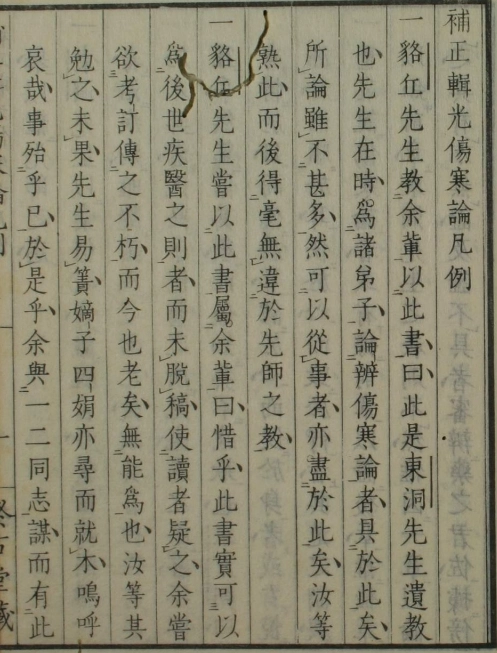 補正輯光傷寒論凡例
一貉丘先生教余輩以此書曰此是東洞先生遺教
也先生在時爲諸弟子論辨傷寒論者具於此矣
所論雖不甚多然可以從事者亦盡於此矣汝等
熟此而後得毫無違於先師之教
一貉丘先生嘗以此書屬余輩曰惜乎此書實可以
爲後世疾醫之則者而未脱稿使讀者疑之余嘗
欲考訂傳之不朽而今也老矣無能爲也汝等其
勉之未果先生易簀嫡子四娟亦尋而就木嗚呼
哀哉事殆乎已於是乎余與一二同志謀而有此